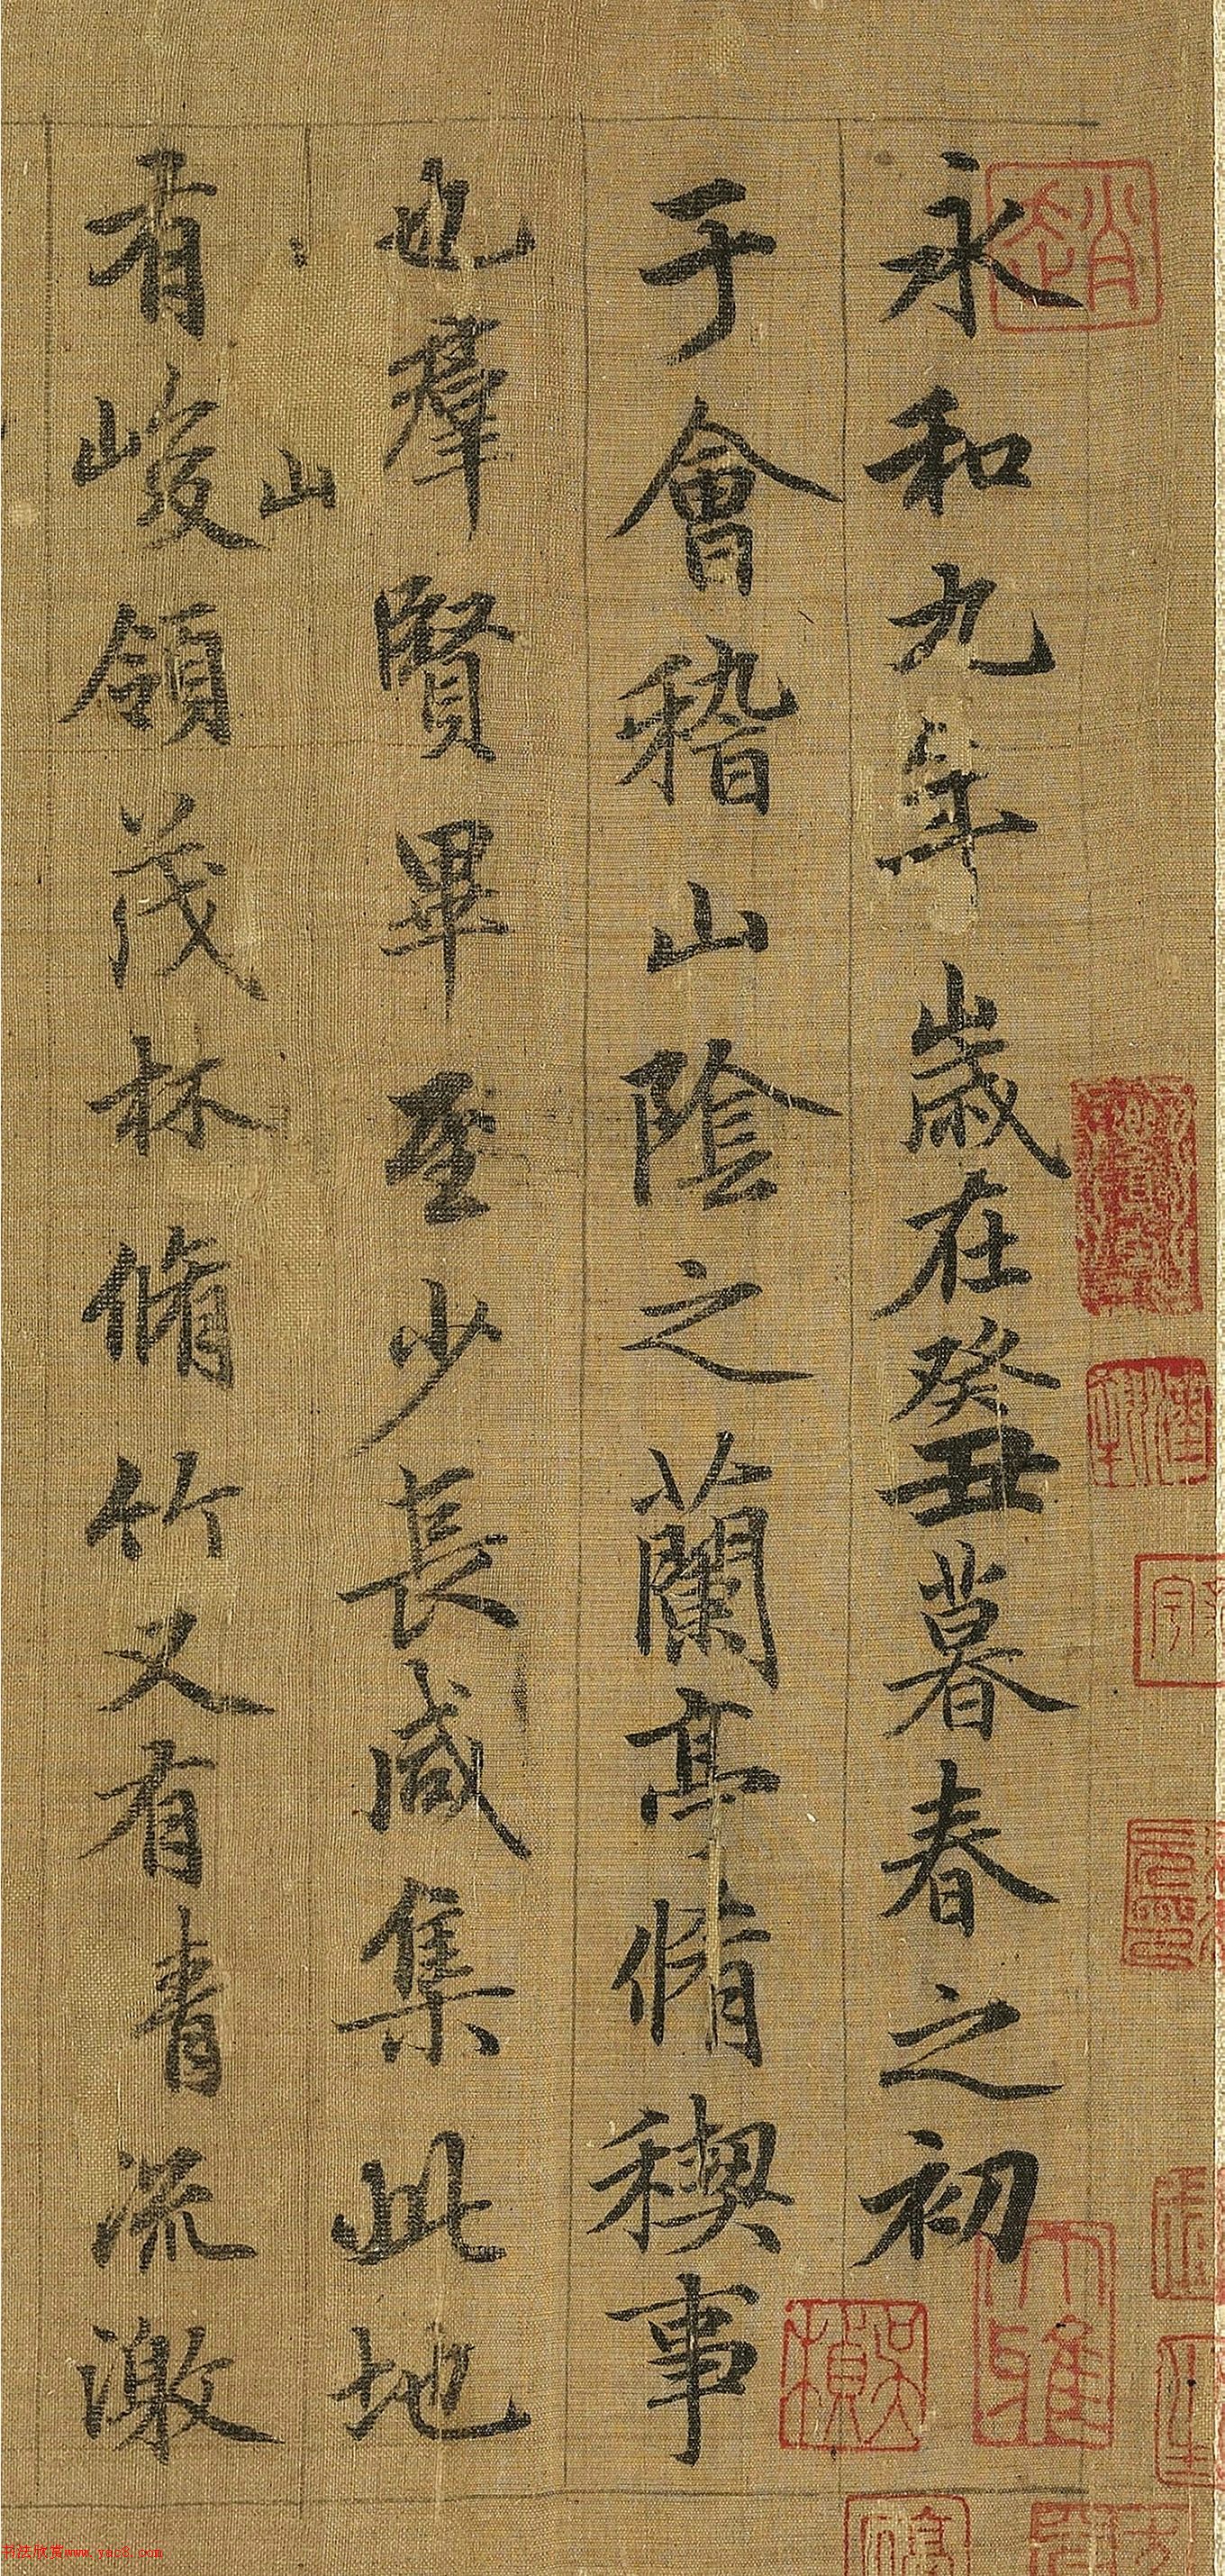 永和九年歲在癸丑暮春之初
于會稽山陰之蘭亭脩稧事
也羣賢畢至少長咸集此地
山
有峻領茂林脩竹又有清流激
趙
大雅
吳楨
书法欣赏www.yac8.com